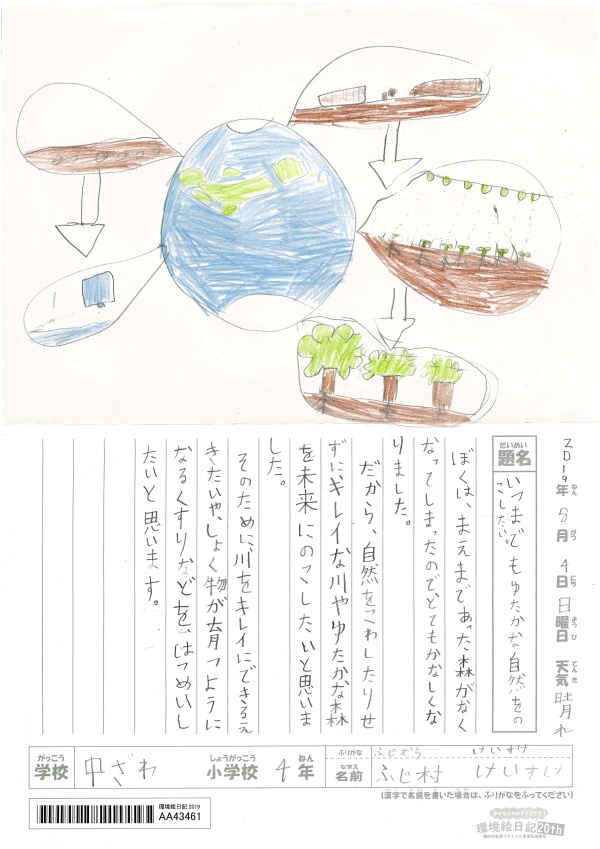 2019年ねん 8月がつ 4日にち 日曜日ようび 天気てんき 晴れ
題名だいめい
いつまでもゆたかな自然をの
こしたい。
ぼくは、まえまであった森がなく
なってしまったのでとてもかなしくな
りました。
だから、自然をこわしたりせ
ずにキレイな川やゆたかな森
を未来にのこしたいと思いま
した。
そのために、川をキレイにできるえ
きたいや、しょく物が育つように
なるくすりなどを、はつめいし
たいと思います。
がっこう
学校 中ざわ しょうがっこう 小学校 4年ねん
ふりがな ふじむら けいすけ
なまえ 名前 ふじ村 けいすけ
(漢字で名前を書いた場合は、ふりがなをふってください)
環境絵日記 2019
AA43461
環境絵日記20th